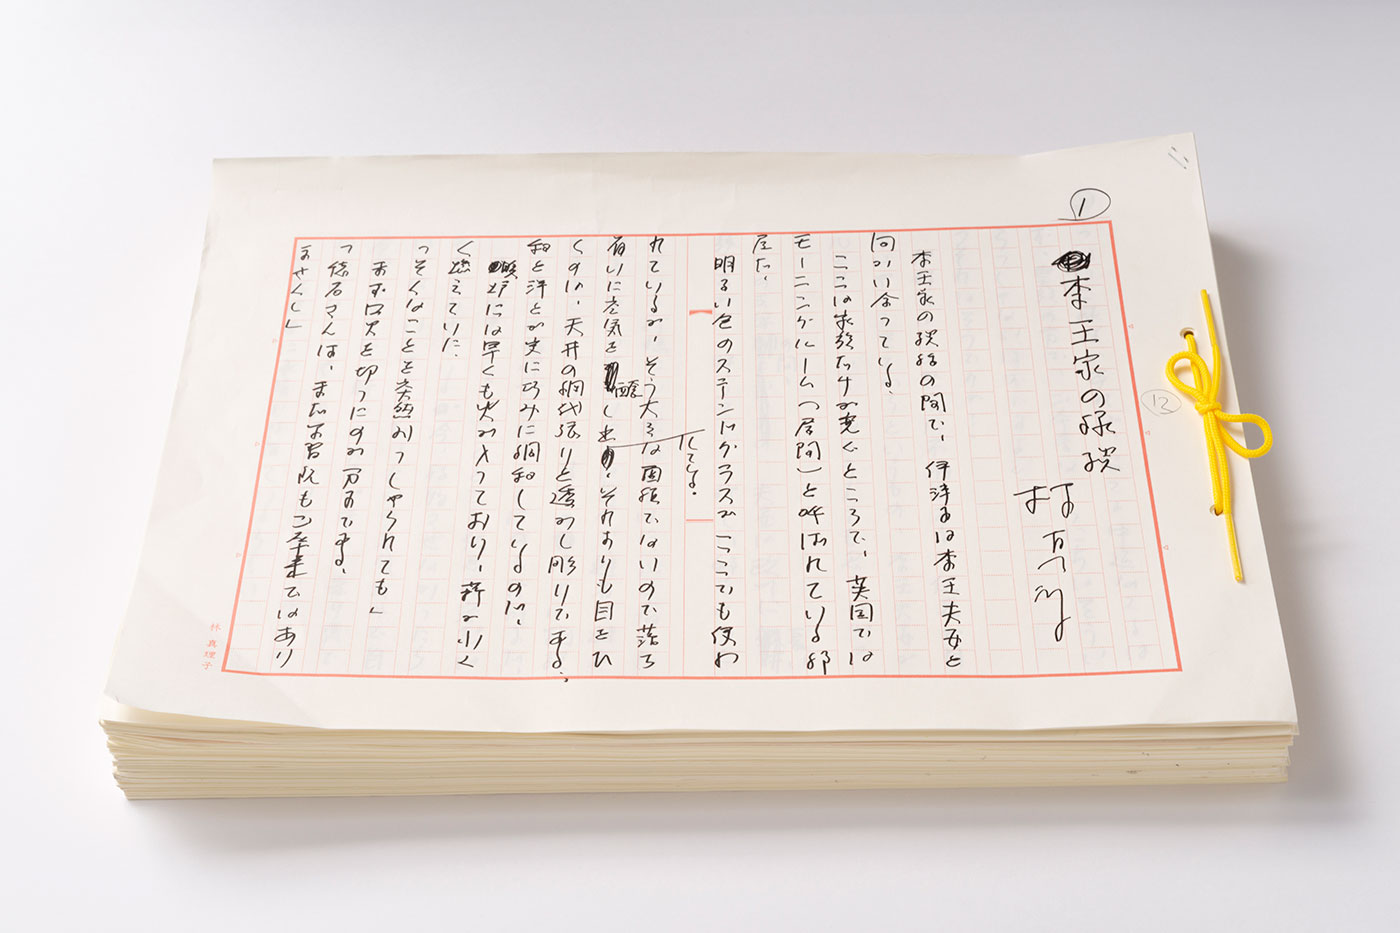 ①
李王家の縁談
林真理子
12
李王家の談話の間で、伊都子は李王夫妻と
向かい合っている。
ここは家族たちが寛ぐところで、英国では
モーニングルーム(居間)と呼ばれている部
屋だ。
明るい色のステンドグラスが、ここでも使わ
れているが、そう大きな面積でないので落ち
着いた空気を醸し出している。それよりも目をひ
くのは、天井の網代張りと透かし彫りである。
和と洋とが実に巧みに調和しているのだ。
暖炉には早くも火が入っており、薪が小さ
く燃えていた。
「そんなことを突然おっしゃられても」
まず口火を切ったのが方子である。
「徳恵さんは、まだ学習院もご卒業ではあり
ませんし」
林真理子